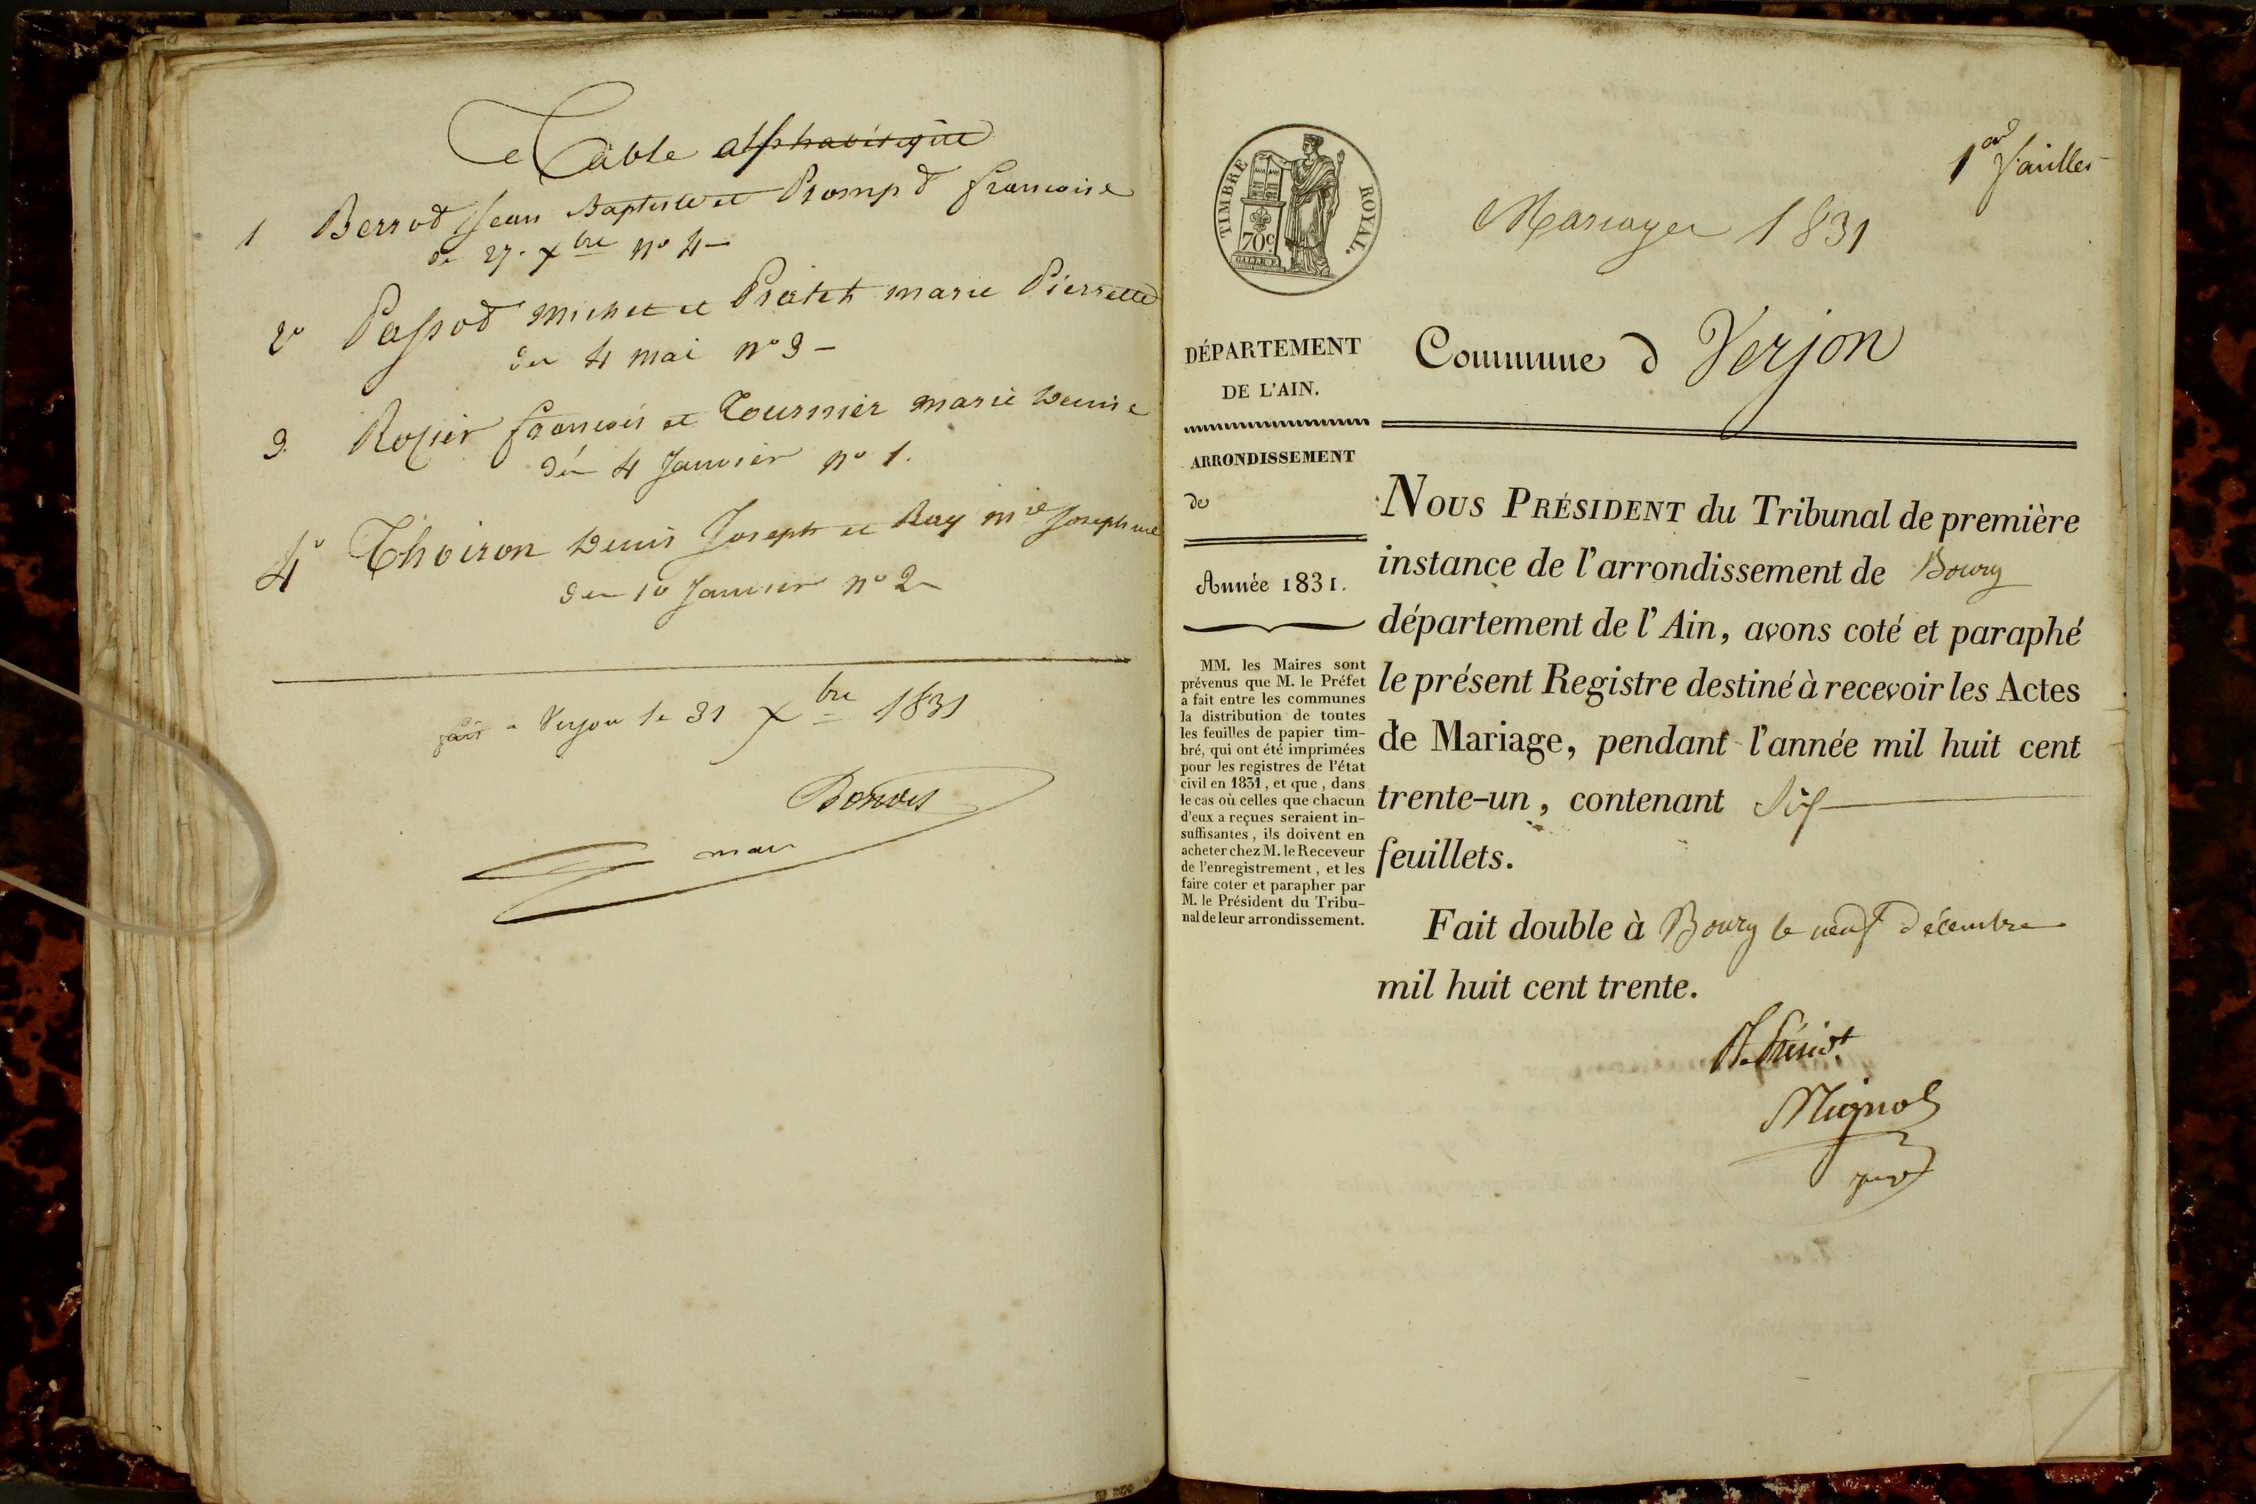 Table alphabétique
1 Berrod Jean Baptiste et Prompt françoise
de 27. Xbre no 4 -
2o Passod michel et Pratet marie Pierrette
du 4 mai no 3 -
3. Rozier françois et Tournier marie Denise
du 4 Janvier no 1.
4o Thoiron Denis Joseph et Rey mie Josephine
du 10 Janvier no 2 -
fait a Verjon le 31 Xbre 1831
maire
1er
Mariages 1831
TIMBRE ROYAL.
70c
DÉPARTEMENT
DE L'AIN.
ARRONDISSEMENT
de
Année 1831.
MM. les Maires sont
prévenus que M. le Préfet
a fait entre les communes
la distribution de toutes
les feuilles de papier tim-
bré, qui ont été imprimées
pour les registres de l'état
civil en 1831, et que, dans
le cas où celles que chacun
d'eux a reçues seraient in-
suffisantes, ils doivent en
acheter chez M. le Receveur
de l'enregistrement, et les
faire coter et parapher par
M. le Président du Tribu-
nal de leur arrondissement.
Commune d Verjon
NOUS PRÉSIDENT du Tribunal de première
instance de l'arrondissement de Bourg
département de l'Ain, avons coté et paraphé
le présent Registre destiné à recevoir les Actes
de Mariage, pendant l'année mil huit cent
trente-un, contenant Six
feuillets.
Fait double à Bourg le neuf décembre
mil huit cent trente.